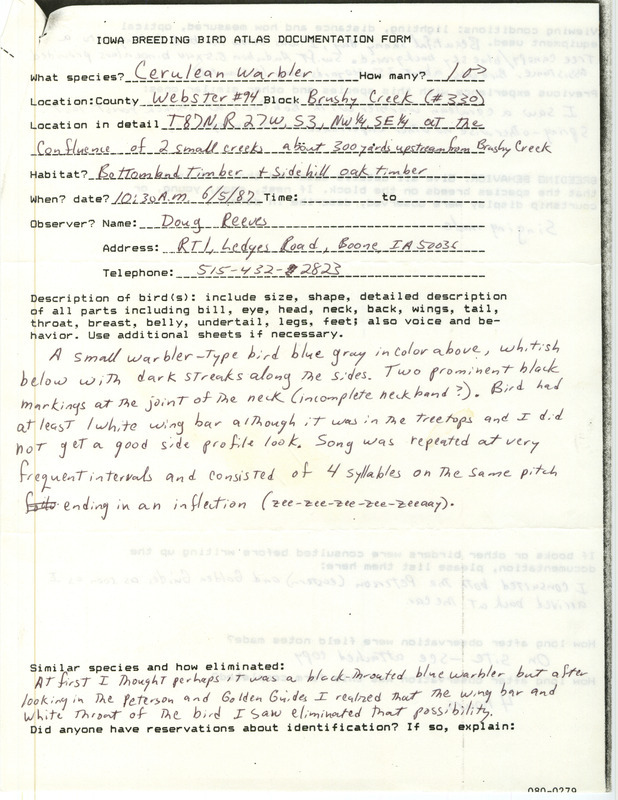 IOWA BREEDING BIRD ATLAS DOCUMENTATION FORM
What species? Cerulean Warbler How many? 1 ♂
Location: County Webster #94 Block Brushy Creek (#330)
Location in detail T87N, R 27W, S3, NW¼, SE¼ at the
Confluence of 2 small creeks about 300 yards upstream from Brushy Creek
Habitat? Bottomland Timber + Sidehill oak timber
When? date? 10:30 A.M. 6/5/87 Time: to
Observer? Name: Doug Reeves
Address: RT 1, Ledges Road, Boone IA 50036
Telephone: 515-432-2823
Description of bird(s): include size, shape, detailed description
of all parts including bill, eye, head, neck, back, wings, tail,
throat, breast, belly, undertail, legs, feet; also voice and be-
havior. Use additional sheets if necessary.
A small warbler-Type bird blue gray in color above, whitish
below with dark streaks along the sides. Two prominent black
markings at the joint of the neck (incomplete neckband?). Bird had
at least 1 white wing bar although it was in the treetops and I did
not get a good side profile look. Song was repeated at very
frequent intervals and consisted of 4 syllables on the same pitch
ending in an inflection (zee-zee-zee-zee-zeeaay).
Similar species and how eliminated:
At first I thought perhaps it was a black-throated blue warbler but after
looking in the Peterson and Golden Guides I realized that the wing bar and
white throat of the bird I saw eliminated that possibility.
Did anyone have reservations about identification? If so, explain: